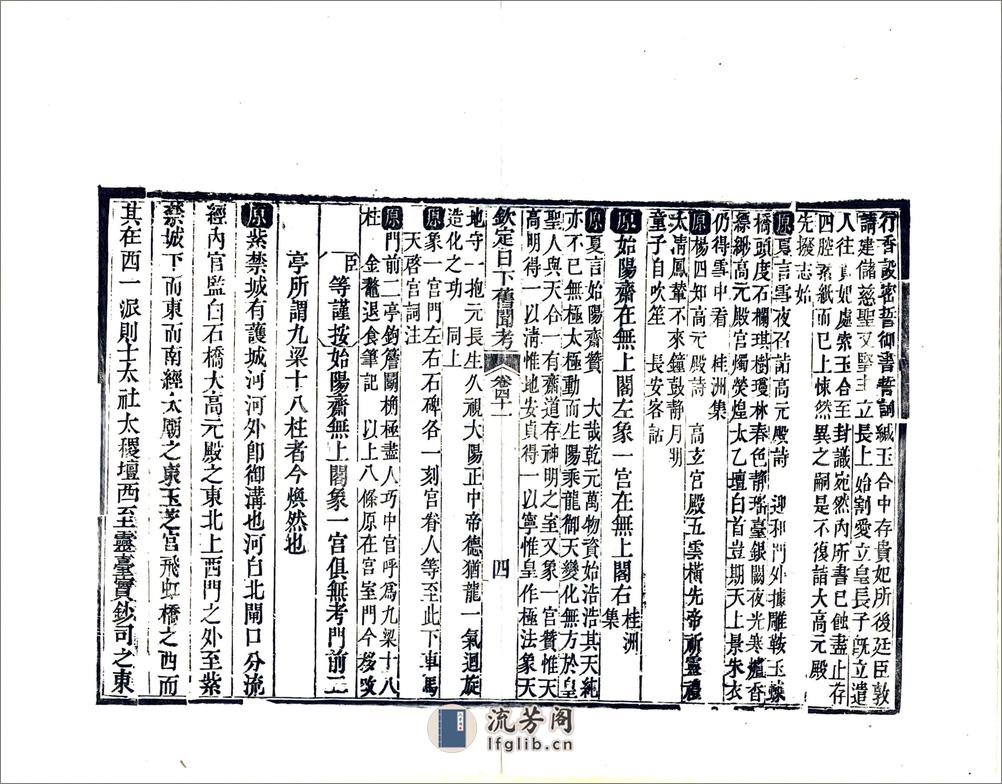 行香設密誓御書誓詞緘玉合中存貴妃所後廷臣敦
請建儲慈聖又堅主立長上始割愛立皇長子旣立遣
人往貴妃處索玉合至封識宛然內所書已蝕盡止存
四腔素紙而已上悚然異之嗣是不復詣大高元殿
先撥志始
原夏言雪夜召詣高元殿詩　迎和門外據雕鞍玉蝀
橋頭度石欄琪樹瓊林春色靜瑤臺銀闕夜光寒爐香
縹緲高元殿宮燭熒煌太乙壇白首豈期天上景朱衣
仍得雪中看　桂洲集
原楊四知高元殿詩　高玄宮殿五雲橫先帝祈靈禮
太淸鳳輦不來鐘鼓靜月明
童子自吹笙　長安客話
原始陽齋在無上閣左象一宮在無上閣右　桂洲集
原夏言始陽齋贊　大哉乾元萬物資始浩浩其天純
亦不已無極太極動而生陽乘龍御天變化無方於皇
聖人與天合一有齋道存神明之室又象一宮贊惟天
高明得一以淸惟地安貞得一以寧惟皇作極法象天
欽定日下舊聞考　卷四十一　四
地守一抱元長生久視大陽正中帝德猶龍一氣迴旋
造化之功　同上
原象一宮門左右石碑各一刻官眷人等至此下車馬
天啓宮詞注
原門前二亭鉤簷鬭桷極盡人巧中官呼爲九梁十八
柱　金鰲退食筆記　以上八條原在宮室門今移改
臣等謹按始陽齋無上閣象一宮俱無考門前二
亭所謂九梁十八柱者今煥然也
原紫禁城有護城河河外卽御溝也河自北閘口分流
經內官監白石橋大高元殿之東北上西門之外至紫
禁城下而東而南經太廟之東玉芝宮飛虹橋之西而
其在西一派則土太社太稷壇西至靈臺寶鈔司之東
流芳阁
lfglib.cn